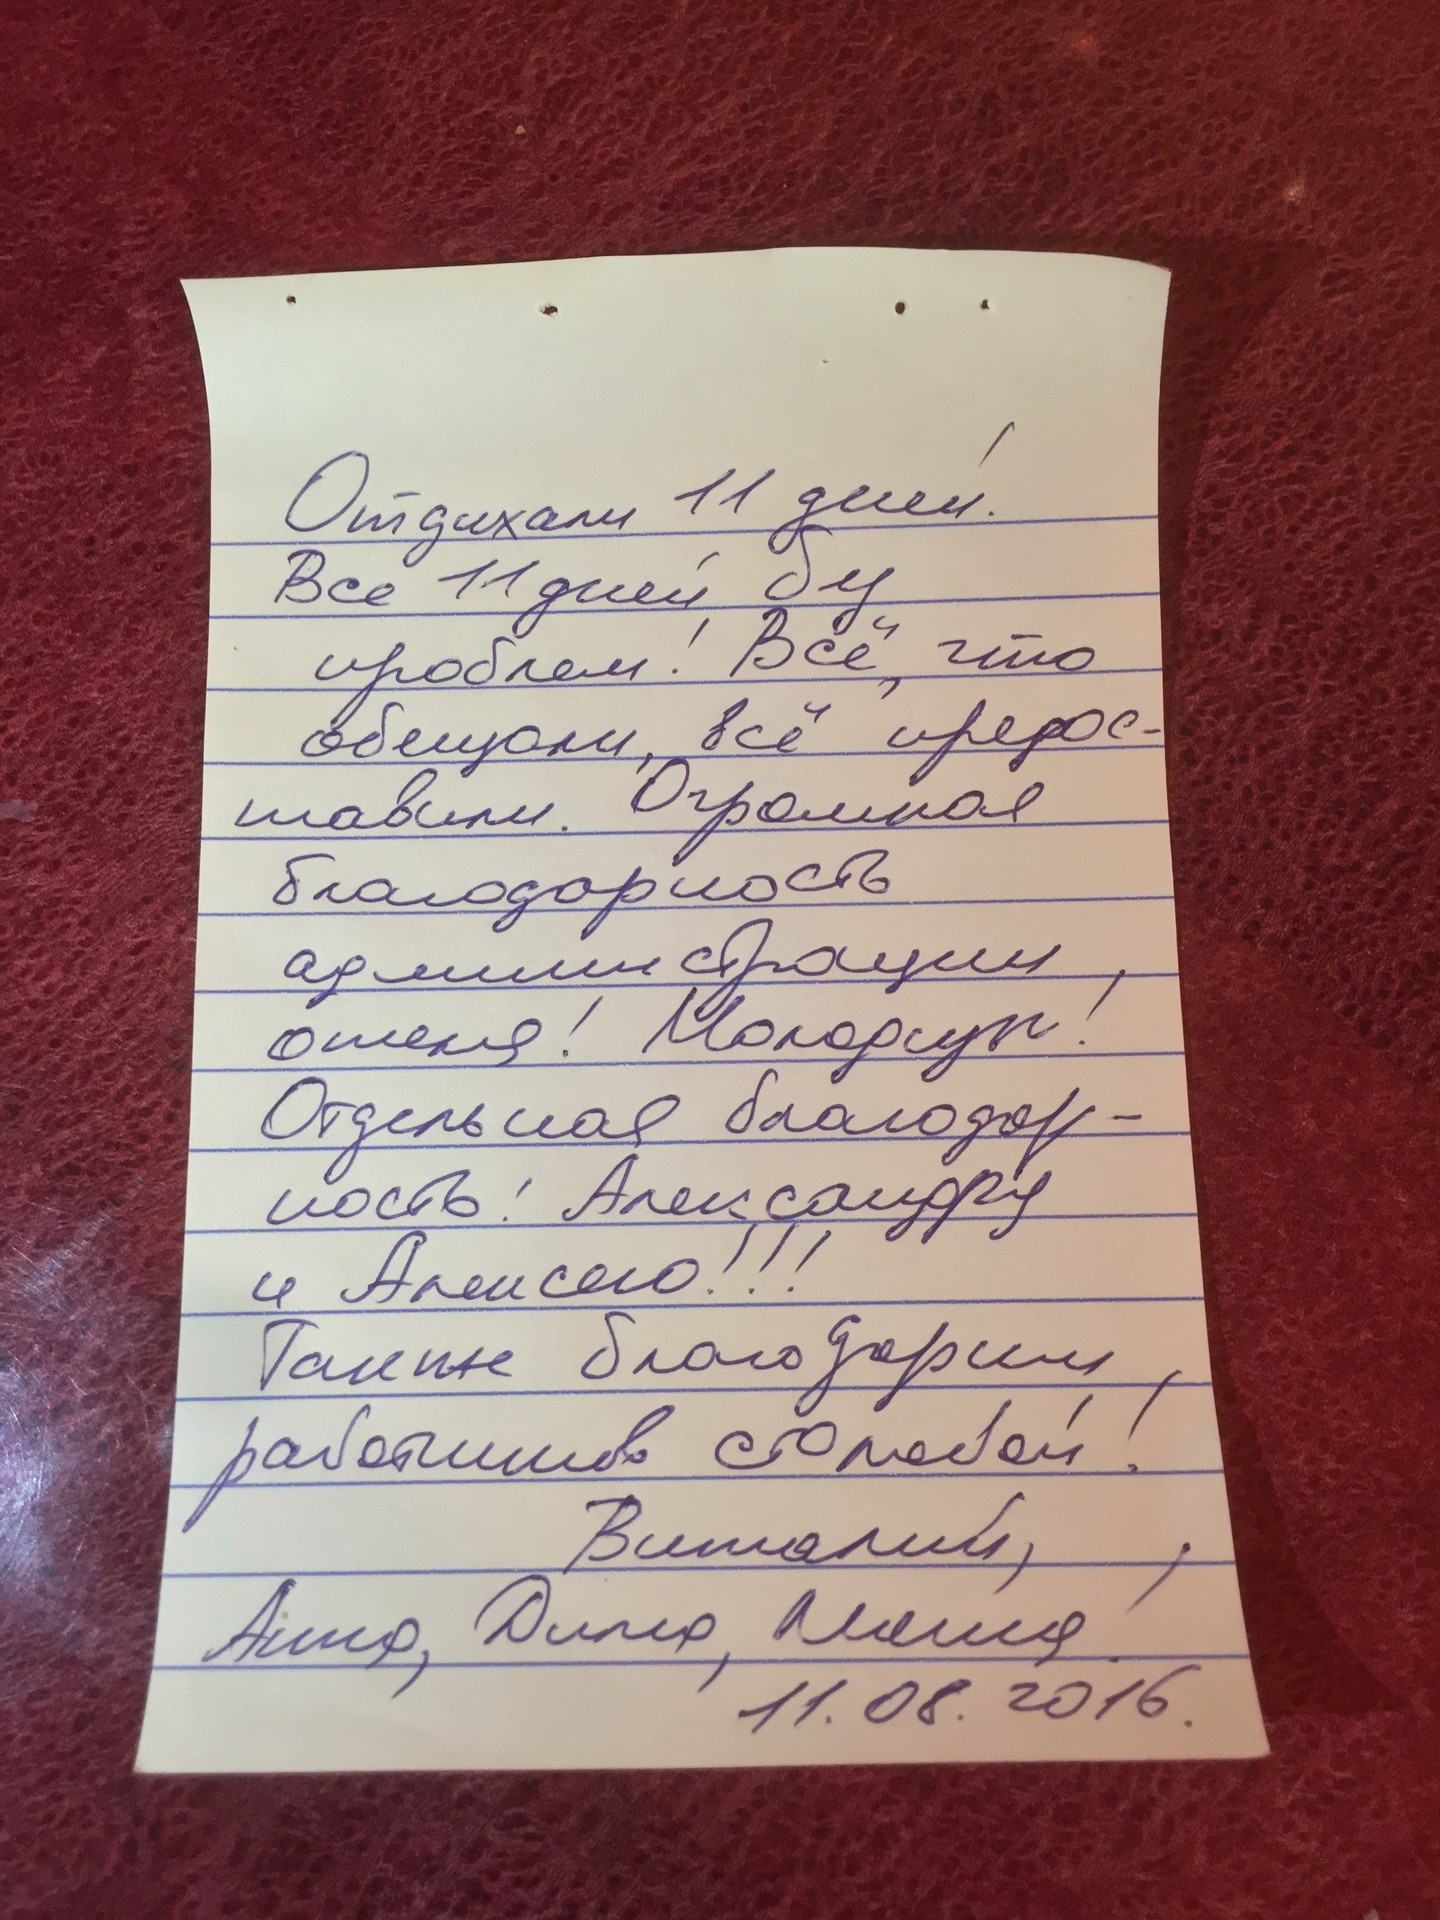 Отдихали 11 дней.
Все 11 дней бу
проблем! Всё, что
обещали, всё предос-
тавили. Огромная
благодарность
администрации,
отеля! Молодцы!
Отдельная благодар-
ность! Александру
и Алексею!!!
Также благодарим,
работников столовой!
Виталий,
Анна, Дима, Маша!
11.08.2016.